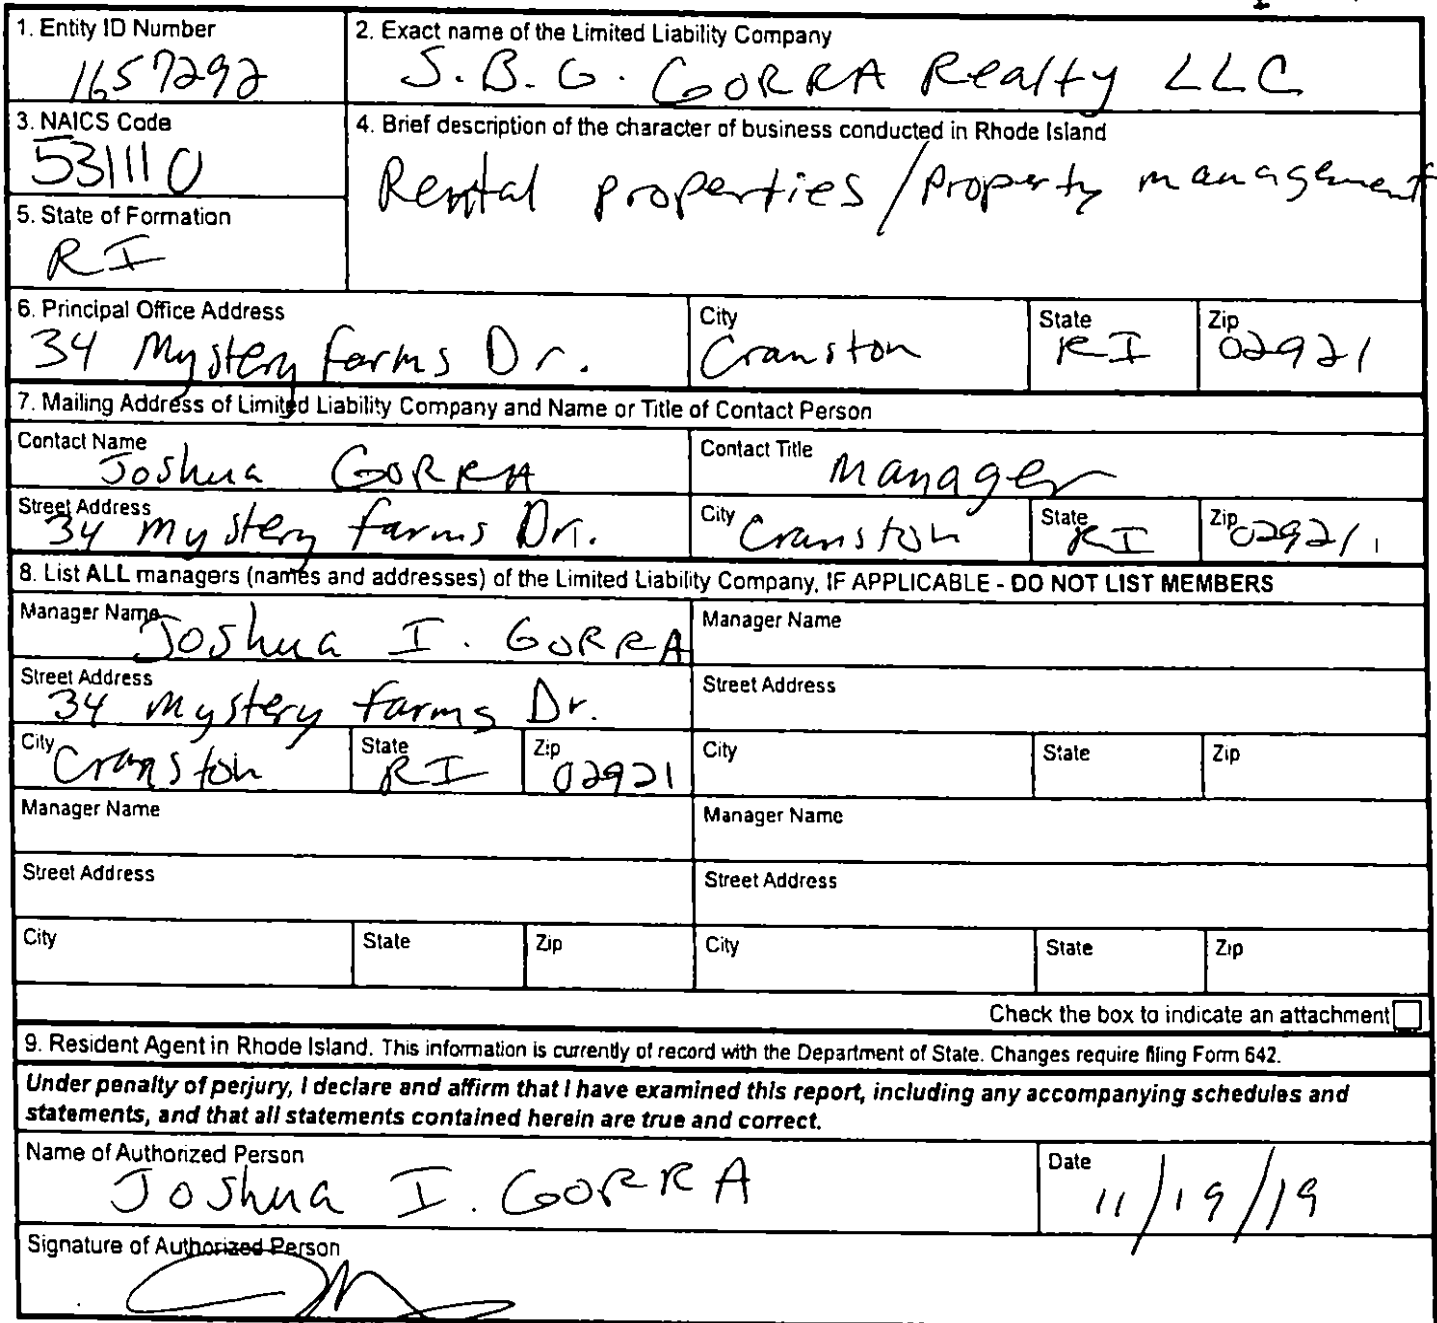 1. Entity ID Number
1657292
2. Exact name of the Limited Liability Company
S.B.G. GORRA Realty LLC
3. NAICS Code
531110
4. Brief description of the character of business conducted in Rhode Island
Rental properties / Property management
5. State of Formation
RI
6. Principal Office Address
34 Mystery farms Dr.
City
Cranston
State
RI
Zip
02921
7. Mailing Address of Limited Liability Company and Name or Title of Contact Person
Contact Name
Joshua GORRA
Contact Title
Manager
Street Address
34 Mystery farms Dr.
City
Cranston
State
RI
Zip
02921
8. List ALL managers (names and addresses) of the Limited Liability Company, IF APPLICABLE - DO NOT LIST MEMBERS
Manager Name
Joshua I. GORRA
Manager Name
Street Address
34 Mystery farms Dr.
Street Address
City
Cranston
State
RI
Zip
02921
City
State
Zip
Manager Name
Manager Name
Street Address
Street Address
City
State
Zip
City
State
Zip
Check the box to indicate an attachment
9. Resident Agent in Rhode Island. This information is currently of record with the Department of State. Changes require filing Form 642.
Under penalty of perjury, I declare and affirm that I have examined this report, including any accompanying schedules and
statements, and that all statements contained herein are true and correct.
Name of Authorized Person
Joshua I. GORRA
Date
11/19/19
Signature of Authorized Person